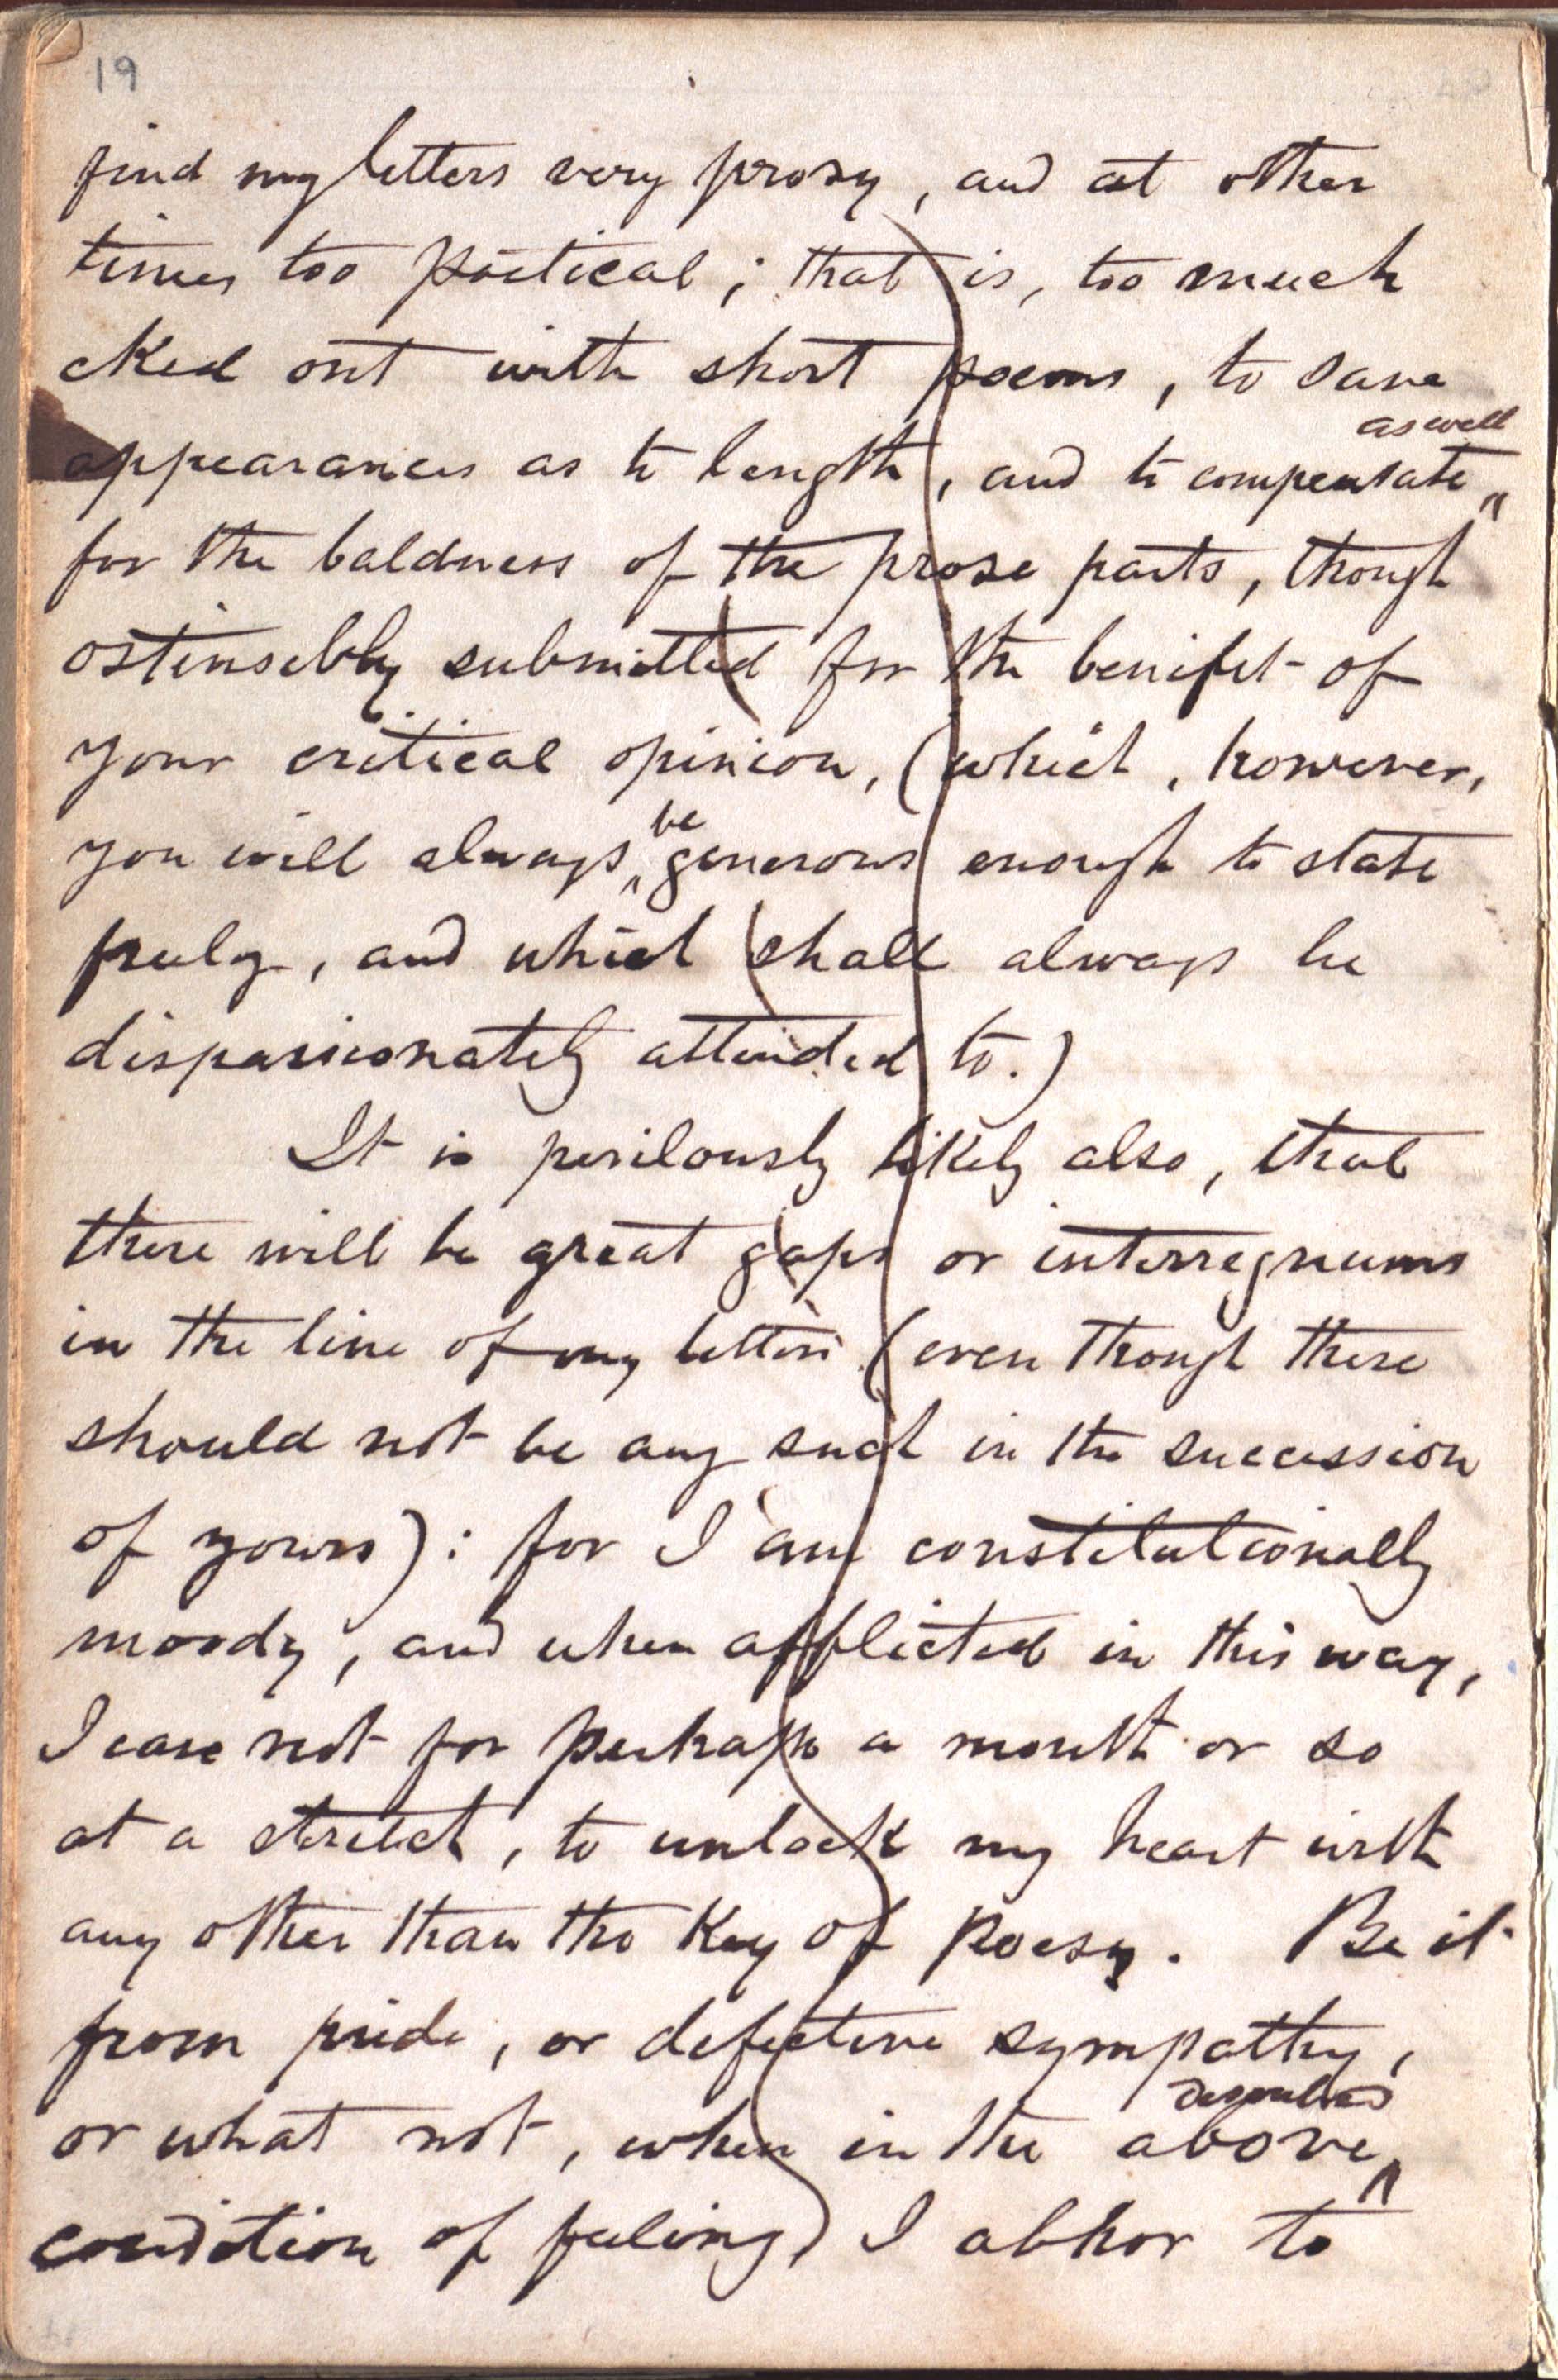 19
find my letters very prosy, and at other
times too poetical; that is, too much
eked out with short poems, to save
appearances as to length, and to compensate as well
for the baldness of the prose parts, though
ostensibly submitted for the benifit of
your critical opinion, (which, however,
you will always be generous enough to state
freely, and which shall always be
dispassionately attended to.)
It is perilously likely also, that
there will be great gaps or interregnums
in the line of my letters (even though there
should not be any such in the succession
of yours): for I am constitutionally
moody, and when afflicted in this way,
I care not for perhaps a month or so
at a stretch, to unlock my heart with
any other than the Key of Poesy. Be it
from pride, or defective sympathy,
or what not, when in the above described
condition of feeling, I abhor to